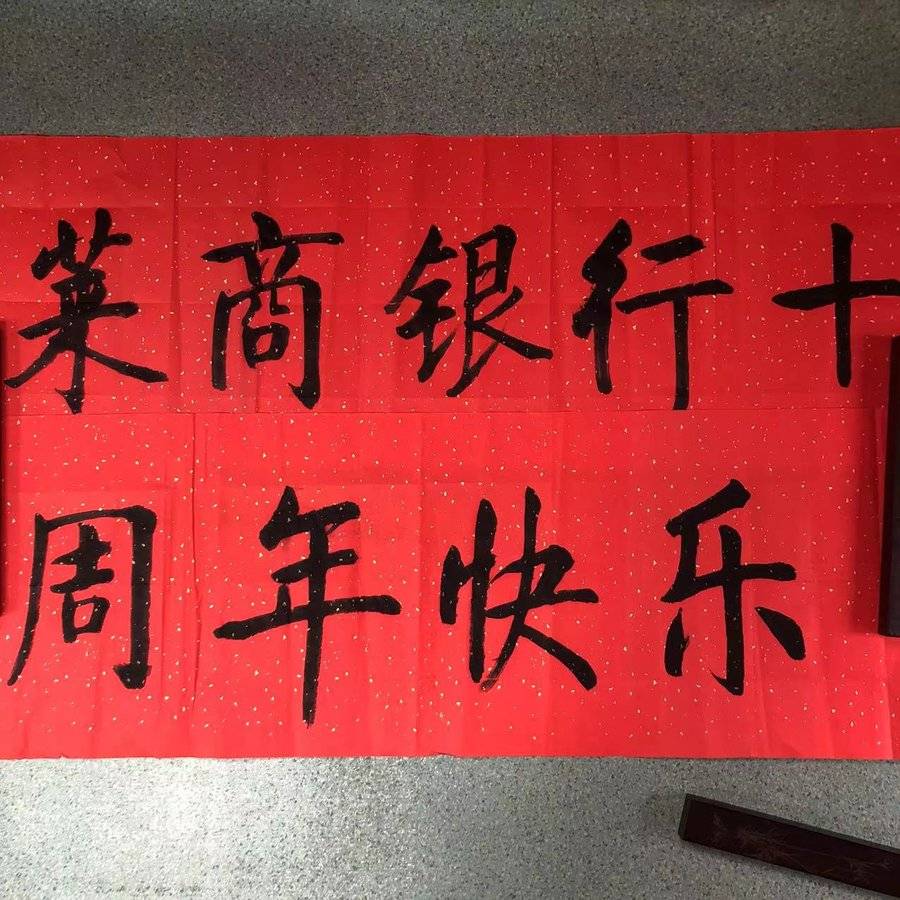 莱商银行十
周年快乐